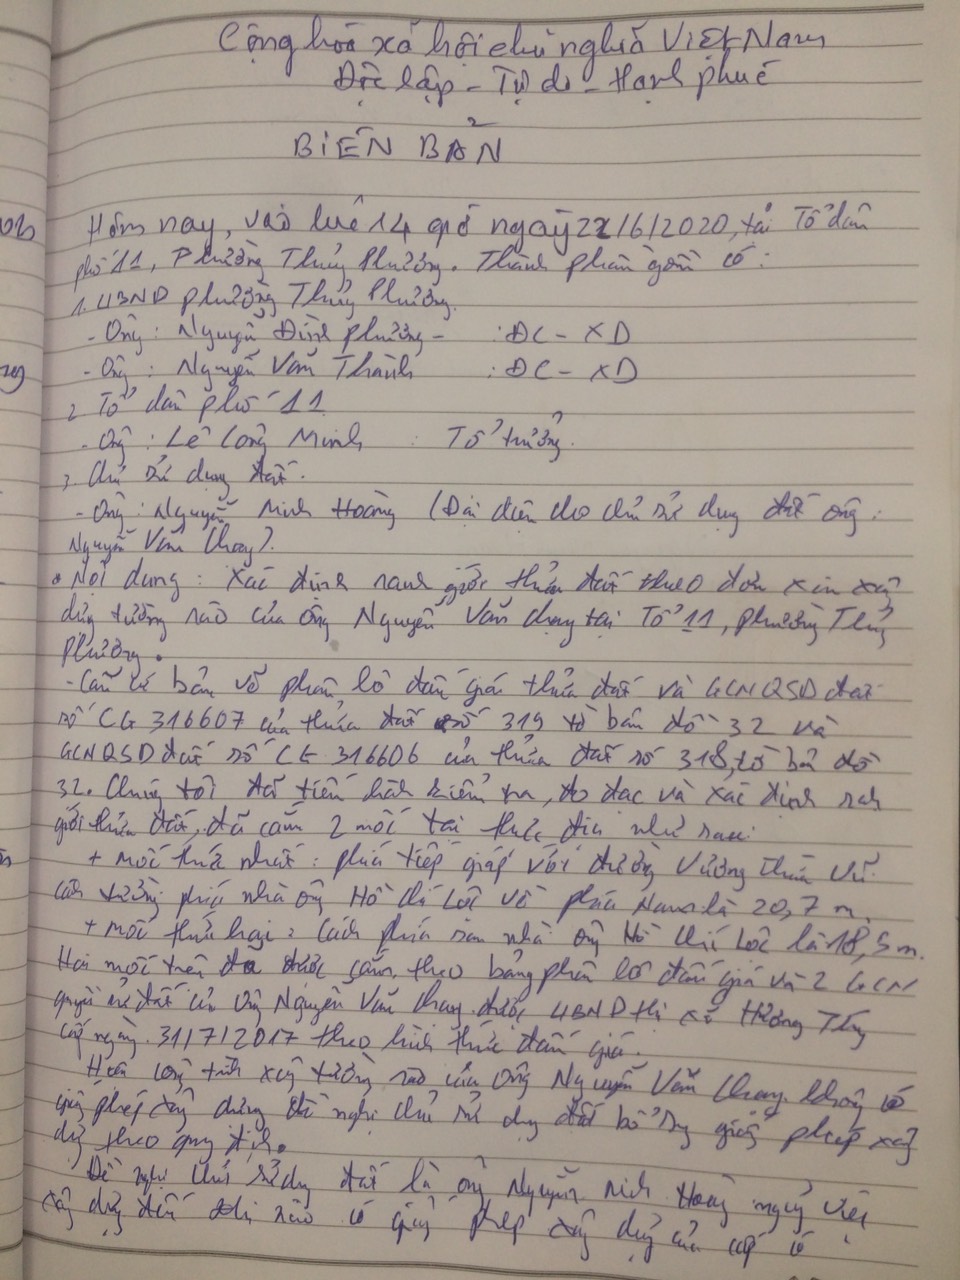 Cộng hòa xã hội chủ nghĩa Việt Nam
Độc lập - Tự do - Hạnh phúc
BIÊN BẢN
Hôm nay, vào lúc 14 giờ ngày 22/6/2020, tại Tổ dân
phố 11, Phường Thủy Phương. Thành phần gồm có:
1. UBND phường Thủy Phương.
- Ông: Nguyễn Đình Phương - : ĐC - XD
- Ông: Nguyễn Văn Thành : ĐC - XD
2. Tổ dân phố 11
- Ông: Lê Công Minh : Tổ trưởng.
3. Chủ sử dụng đất.
- Ông: Nguyễn Minh Hoàng (Đại diện cho chủ sử dụng đất ông:
Nguyễn Văn Chay).
• Nội dung: Xác định ranh giới thửa đất theo đơn xin xây
dựng tường rào của ông Nguyễn Văn Chay tại Tổ 11, phường Thủy
Phương.
- Căn cứ bản vẽ phân lô đấu giá thửa đất và GCNQSD đất
số CG 316607 của thửa đất số 319 tờ bản đồ 32 và
GCNQSD đất số CG 316606 của thửa đất số 318, tờ bản đồ
32. Chúng tôi đã tiến hành kiểm tra, đo đạc và xác định ranh
giới thửa đất, đã cắm 2 mốc tại thực địa như sau:
+ Mốc thứ nhất: phía tiếp giáp với đường Vương Thừa Vũ
cách tường phía nhà ông Hồ Chí Lộc về phía Nam là 20,7 m.
+ Mốc thứ hai: Cách phía sau nhà ông Hồ Chí Lộc là 18,5 m.
Hai mốc trên đã được cắm theo bảng phân lô đấu giá và 2 GCN
quyền sử đất của ông Nguyễn Văn Chay được UBND thị xã Hương Thủy
cấp ngày 31/7/2017 theo hình thức đấu giá.
công trình xây tường rào của ông Nguyễn Văn Chay không có
giấy phép xây dựng đề nghị chủ sử dụng đất bổ sung giấy phép xây
dựng theo quy định.
Đề nghị chủ sử dụng đất là ông Nguyễn Minh Hoàng ngừng việc
xây dựng đến khi nào có giấy phép xây dựng của cấp có